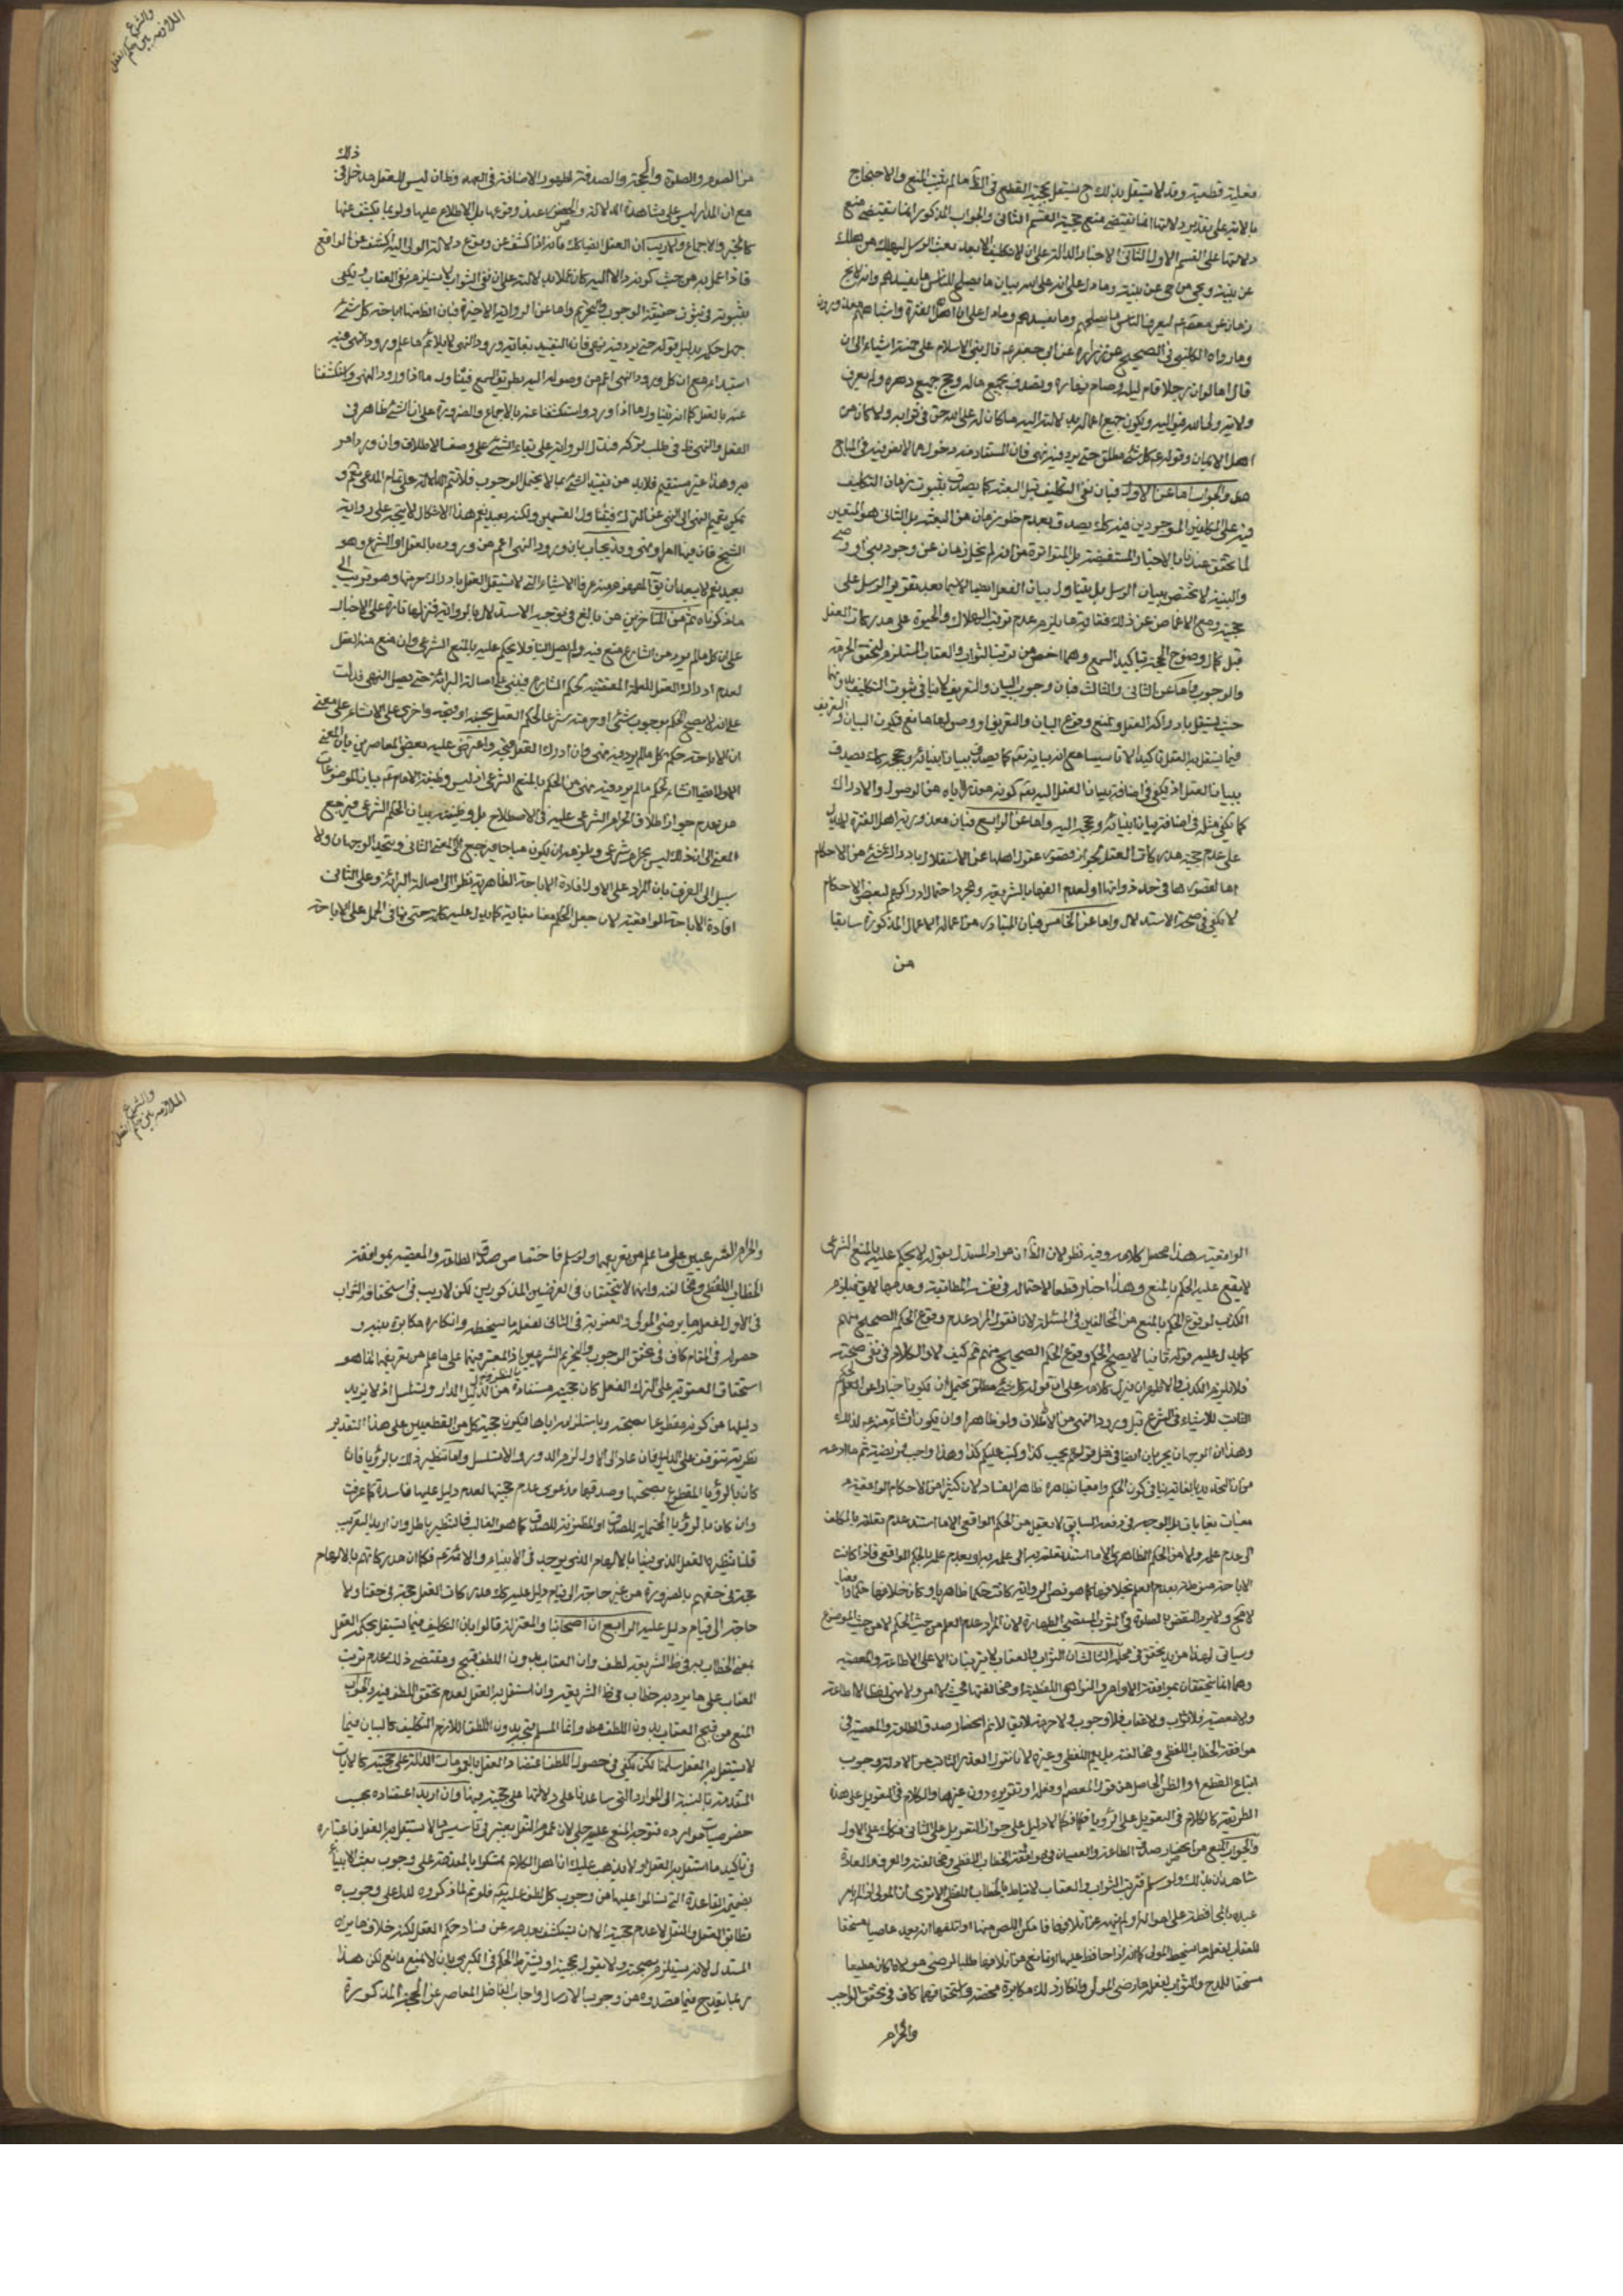 فعلية قطعية وقد لا يستقل بذلك
بالاية على تقدير دلالتها انما تقتضي منع حجية القسم الثاني والجواب المذكور انما يقتضي منع
دلالتها على القسم الاول الثاني الاخبار الدالة على انه لا تكليف الا بعد بعث الرسل ليهلك من هلك
عن بينة ويحيى من حي عن بينة وما دل على ان على الله بيان ما يصلح للناس وما يفسدهم وانه لا يخ
زمان عن معصوم ليعرف الناس ما يصلحهم وما يفسدهم وما دل على ان اهل الفترة واشباههم معذورون
وما رواه الكليني في الصحيح عن زرارة عن ابي جعفر ع قال بني الاسلام على خمسة اشياء الى ان
قال اما لو ان رجلا قام ليله وصام نهاره وتصدق بجميع ماله وحج جميع دهره ولم يعرف
ولاية ولي الله فيواليه ويكون جميع اعماله بدلالته اليه ما كان له على الله حق في ثوابه ولا كان من
اهل الايمان وقوله ع كل شئ مطلق حتى يرد فيه نهي فان المستفاد منه دخول ما لا نص فيه في المباح
والجواب اما عن الاول فبان نفي التكليف قبل البعثة كما يصدق بثبوت زمان التكليف
فيه على المكلفين الموجودين فيه كك يصدق بعدم خلو زمان من البعثة بل الثاني هو المتعين
لما تحقق عندنا بالاخبار المستفيضة بل المتواترة من انه لم يخل زمان عن وجود نبي او وصي
والبينة لا تختص ببيان الرسل بل يتناول بيان العقل ايضا لا سيما بعد تقوية الرسل على
حجيته ومع الاغماض عن ذلك فغاية ما يلزم عدم ترتب الهلاك والحيوة على مدركات العقل
قبل كمال وضوح الحجة بتاكيد السمع وهما اخص من ترتب الثواب والعقاب المستلزم لتحقق الحرمة
والوجوب واما عن الثاني والثالث فبان وجوب البيان والتعريف لا ينافي ثبوت التكليف بدونهما
حيث يستقل بادراكه العقل ويمنع وقوع البيان والتعريف او وصولهما مع فيكون البيان والتعريف
فيما يستقل به العقل تاكيدا لا تاسيسا مع انه بيانه تع كما يصدق ببيان انبيائه وحججه كك يصدق
ببيان العقل اذ يكفي في اضافة بيان العقل اليه تع كونه من الوصول والادراك
كما يكفي مثله في اضافة بيان انبيائه وحججه اليه واما عن الرابع فبان معذورية اهل الفترة لا يدل
على عدم حجية مدركات العقل لجواز قصور عقول اهلها عن الاستقلال بادراك شئ من الاحكام
اما لقصورها في حد ذواتها او لعدم الفها بالشريعة ومجرد احتمال ادراكهم لبعض الاحكام
لا يكفي في صحة الاستدلال واما عن الخامس فبان المتبادر من اعماله الاعمال المذكورة سابقا
من
والشرع
الملازمة بين حكم العقل
ذلك
من الصوم والصلوة والحج والصدقة لظهور الاضافة في العهد وظ ان ليس للعقل مدخل في
مع ان المدار ليس على مشاهدة الدلالة والفحص عند وقوعها بل الاطلاع عليها ولو بما يكشف عنها
كالخبر والاجماع ولا ريب ان العقل ايضا كك فانه اذا كشف عن وقوع دلالة الولي اليه كشف عن الواقع
فاذا عمل به من حيث كونه دالا اليه كان عملا بدلالته على ان نفي الثواب لا يستلزم نفي العقاب ويكفي
بثبوته في ثبوت حقيقة الوجوب والتحريم واما عن الرواية الاخيرة فبان الظ منها اباحة كل شئ
جهل حكمه بدليل قوله حتى يرد فيه نهي فان التقييد بغاية ورود النهي لا يلائم ما علم ورود النهي فيه
ابتداء مع ان كل ورود النهي اعم من وصوله اليه بطريق السمع فيتناول ما اذا ورد النهي وانكشفنا
عنه بالعقل كما انه يتناول ما اذا ورد واستكشفنا عنه بالاجماع والضرورة على ان الشئ ظاهر في
الفعل والنهي ظ في طلب تركه فتدل الرواية على بقاء الشئ على وصف الاطلاق وان ورد امر
به وهذا غير مستقيم فلا بد من تقييد الشئ بما لا يحتمل الوجوب فلا تتم الدلالة على تمام المدعى نعم و
يمكن تعميم النهي الى النهي عن الترك فيتناول القسمين ولكنه بعيد نعم هذا الاشكال لا يتجه على رواية
الشيخ فان فيها امر او نهي وقد يجاب بان ورود النهي اعم من وروده بالعقل او الشرع وهو
بعيد نعم لا يبعد ان يق المفهوم منه عرفا الاشياء التي لا يستقل العقل بادراك حرمتها وهو قريب الى
ما ذكرناه ثم من المتاخرين من بالغ في توجيه الاستدلال بالرواية فنزلها تارة على الاخبار
على ان كل ما لم يرد من الشارع منع فيه ولم يصل الينا فلا يحكم عليه بالمنع الشرعي وان منع منه العقل
لعدم ادراك العقل للعلة المقتضية لحكم الشارع فيبنى على اصالة البرائة حتى يصل النهي فدلت
على انه لا يصح الحكم بوجوب شئ او حرمته شرعا لحكم العقل بحسنه او قبحه واخرى على الانشاء على معنى
ان الاباحة حكم كل ما لم يرد فيه نهي وان ادرك العقل قبحه واعترض عليه بعض المعاصرين بان المعنى
الاول ايضا انشاء لحكم ما لم يرد فيه نهي من الحكم بالمنع الشرعي اذ ليس وظيفة الامام ع بيان الموضوعات
من عدم جواز اطلاق الحرام الشرعي عليه في الاصطلاح بل وظيفته بيان الحكم الشرعي فيرجع
المعنى الى ان ذلك ليس بحرام شرعي ويلزمه ان يكون مباحا فيرجع الى المعنى الثاني ويتحد الوجهان ولا
سبيل الى الفرق بان المراد على الاول افادة الاباحة الظاهرية نظرا الى اصالة البرائة وعلى الثاني
افادة الاباحة الواقعية لان جعل الحكم مغيا بغاية كما يدل عليه كلمة حتى ينافي الحمل على الاباحة
الواقعية هذا محصل كلامه وفيه نظر لان الظ ان مراد المستدل بقوله لا يحكم عليه بالمنع الشرعي
لا يقع عليه الحكم بالمنع وهذا اخبار قطعا لاحتماله في نفسه المطابقة وعدمها لا يق فيلزم
الكذب لوقوع الحكم بالمنع من المخالفين في المسئلة لانا نقول المراد عدم وقوع الحكم الصحيح منهم
كما يدل عليه قوله ثانيا لا يصح الحكم ووقوع الحكم الصحيح منهم ثم كيف لا والكلام في نفي صحته
فلا يلزم الكذب والاظهر ان ينزل كلامه على ان قوله كل شئ مطلق يحتمل ان يكون اخبارا عن الحكم
الثابت للاشياء في الشرع قبل ورود النهي من الاطلاق ولو ظاهرا وان يكون انشاء منه ع لذلك
وهذان الوجهان يجريان ايضا في مثل قوله ع يجب كذا وكتب عليكم كذا وهذا واجب او فريضة ثم ما ادعاه
من ان التحديد بالغاية ينافي كون الحكم واقعيا ظاهره ظاهر الفساد لان كثيرا من الاحكام الواقعية
مغيات بغايات بل الوجه في دفعه السابق لا يعقل من الحكم الواقعي الا ما استند عدم تعلقه بالمكلف
الى عدم علمه ولا من الحكم الظاهري الا ما استند تعلقه به الى علمه به او بعدم علمه بالحكم الواقعي فاذا كانت
الاباحة منوطة بعدم العلم بخلافها كما هو نص الرواية كانت حكما ظاهريا وكان خلافها حكما واقعيا
لا مح ولا يرد النقض بالصلوة في الثوب المستصحب الطهارة لان المراد عدم العلم من حيث الحكم لا من حيث الموضوع
وسياتي لهذا مزيد تحقق في محله الثالث ان الثواب والعقاب لا يترتبان الا على الاطاعة والمعصية
وهما انما يتحققان بموافقة الاوامر والنواهي اللفظية او مخالفتها فحيث لا امر ولا نهي لفظا لا اطاعة
ولا معصية فلا ثواب ولا عقاب فلا وجوب ولا حرمة لا يق لا نم انحصار صدق الطاعة والمعصية في
موافقة الخطاب اللفظي ومخالفته بل يعم اللفظي وغيره لانا نقول القدر الثابت من الادلة وجوب
اتباع القطع او الظن الحاصل من قول المعصوم او فعله او تقريره دون غيرها والكلام في التعويل على هذه
الطريقة كالكلام في التعويل على الرؤيا فكما لا دليل على جواز التعويل على الثاني فكك على الاول
والجواب المنع من انحصار صدق الطاعة والعصيان في موافقة الخطاب اللفظي ومخالفته والعرف والعادة
شاهدان بذلك ولو سلم فترتب الثواب والعقاب لا يناط بالخطاب اللفظي الا ترى ان المولى اذا امر
عبده بالمحافظة على امواله ولم ينهه عن اتلافها فامكن اللص منها او اتلفها انه يعد عاصيا مستحقا
للعقاب لفعله ما يسخط المولى كما انه اذا حافظ عليها او مانع من اتلافها طلبا لمرضي مولاه كان مطيعا
مستحقا للمدح والثواب لفعله ما يرضى المولى وانكار ذلك مكابرة محضة واستحقاقهما كاف في تحقق الواجب
والحرام
والشرع
الملازمة بين حكم العقل
والحرام الشرعيين على ما علم من تعريفهما ولو سلم فاختصاص صدق الطاعة والمعصية بموافقة
الخطاب اللفظي ومخالفته وانهما لا يتحققان في الفرضين المذكورين لكن لا ريب في استحقاقه الثواب
في الاول لفعله ما يرضى المولى والعقوبة في الثاني لفعله ما يسخطه وانكاره مكابرة بينة و
حصوله في المقام كاف في تحقق الوجوب والتحريم الشرعيين اذ المعتبر فيهما على ما علم من تعريفهما انما هو
استحقاق العقوبة على الترك او الفعل كان حجيته مستفادة من الدليل لدار او تسلسل اذ لا يزيد
دليلها من كونه مقطوعا بصحته وباستلزامه اياها فيكون حجية كل من القطعيين على هذا التقدير
نظرية تتوقف على الدليل فان عاد الى الاول لزم الدور والا تسلسل واما تنظيره ذلك بالرؤيا فان
كان بالرؤيا المقطوع بصحتها وصدقها فدعوى عدم حجيتها لعدم دليل عليها فاسدة كما عرفت
وان كان بالرؤيا المحتملة للصدق او المظنونة للصدق كما هو الغالب فالتنظير باطل وان اريد التقريب
قلنا نظير العقل الذي فينا بالالهام الذي يوجد في الانبياء والائمة ع فكما ان مدركاتهم بالالهام
حجة في حقهم بالضرورة من غير حاجة الى قيام دليل عليه كك مدركات العقل حجة في حقنا ولا
حاجة الى قيام دليل عليه الرابع ان اصحابنا والمعتزلة قالوا بان التكليف فيما يستقل بحكمه العقل
بمعنى الخطاب به في ظ الشريعة لطف وان العقاب بدون اللطف قبيح ومقتضى ذلك عدم ترتب
العقاب على ما يرد به خطاب في ظ الشريعة وان استقل به العقل لعدم تحقق اللطف فيه والجواب
المنع من قبح العقاب بدون اللطف مط وانما المسلم قبحه بدون اللطف اللازم في التكليف كالبيان فيما
لا يستقل به العقل سلمنا لكن يكفي في حصول اللطف اعتضاد العقل بالعمومات الدالة على حجيته كالايات
المتقدمة بالنسبة الى الموارد التي ساعدنا على دلالتها على حجيته فيها وان اريد اعتضاده بحسب
خصوصيات موارده فتوجه المنع عليه جلي لان عموم النقل يعتبر في تاسيس ما لا يستقل به العقل فاعتباره
في تاكيد ما استقل به العقل اولى لا يذهب عليك ان اهل الكلام تمسكوا بالمقدمة على وجوب بعث الانبياء
بضميمة القاعدة التي تسالموا عليها من وجوب كل لطف عليه تع فلو تم لما ذكروه لدل على وجوب
تطابق العقل والنقل لا عدم حجيته الا ان تنكشف بعدمه عن فساد حكم العقل لكنه خلاف ما يراه
المستدل لانه يستلزم صحته ولا يقول بحجيته او يشترط الحكم في الكبرى بان لا يمنع مانع لكن هذا
ربما يقدح فيما قصدوه من وجوب الارسال واجاب الفاضل المعاصر عن الحجة المذكورة